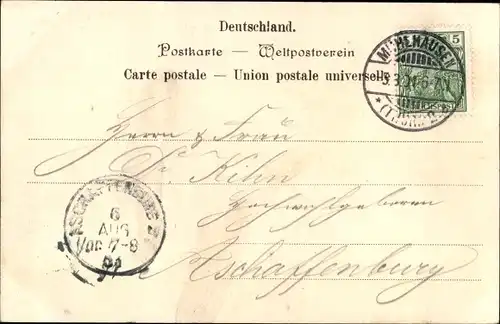 Deutschland.
Postkarte — Weltpostverein
Carte postale — Union postale universelle
5
MÜHLHAUSEN
* (THÜR.)
Herrn & Frau
Dr. Kihn
Hochwohlgeboren
Aschaffenburg
ASCHAFFENBURG
6
AUG
Vor 7-8